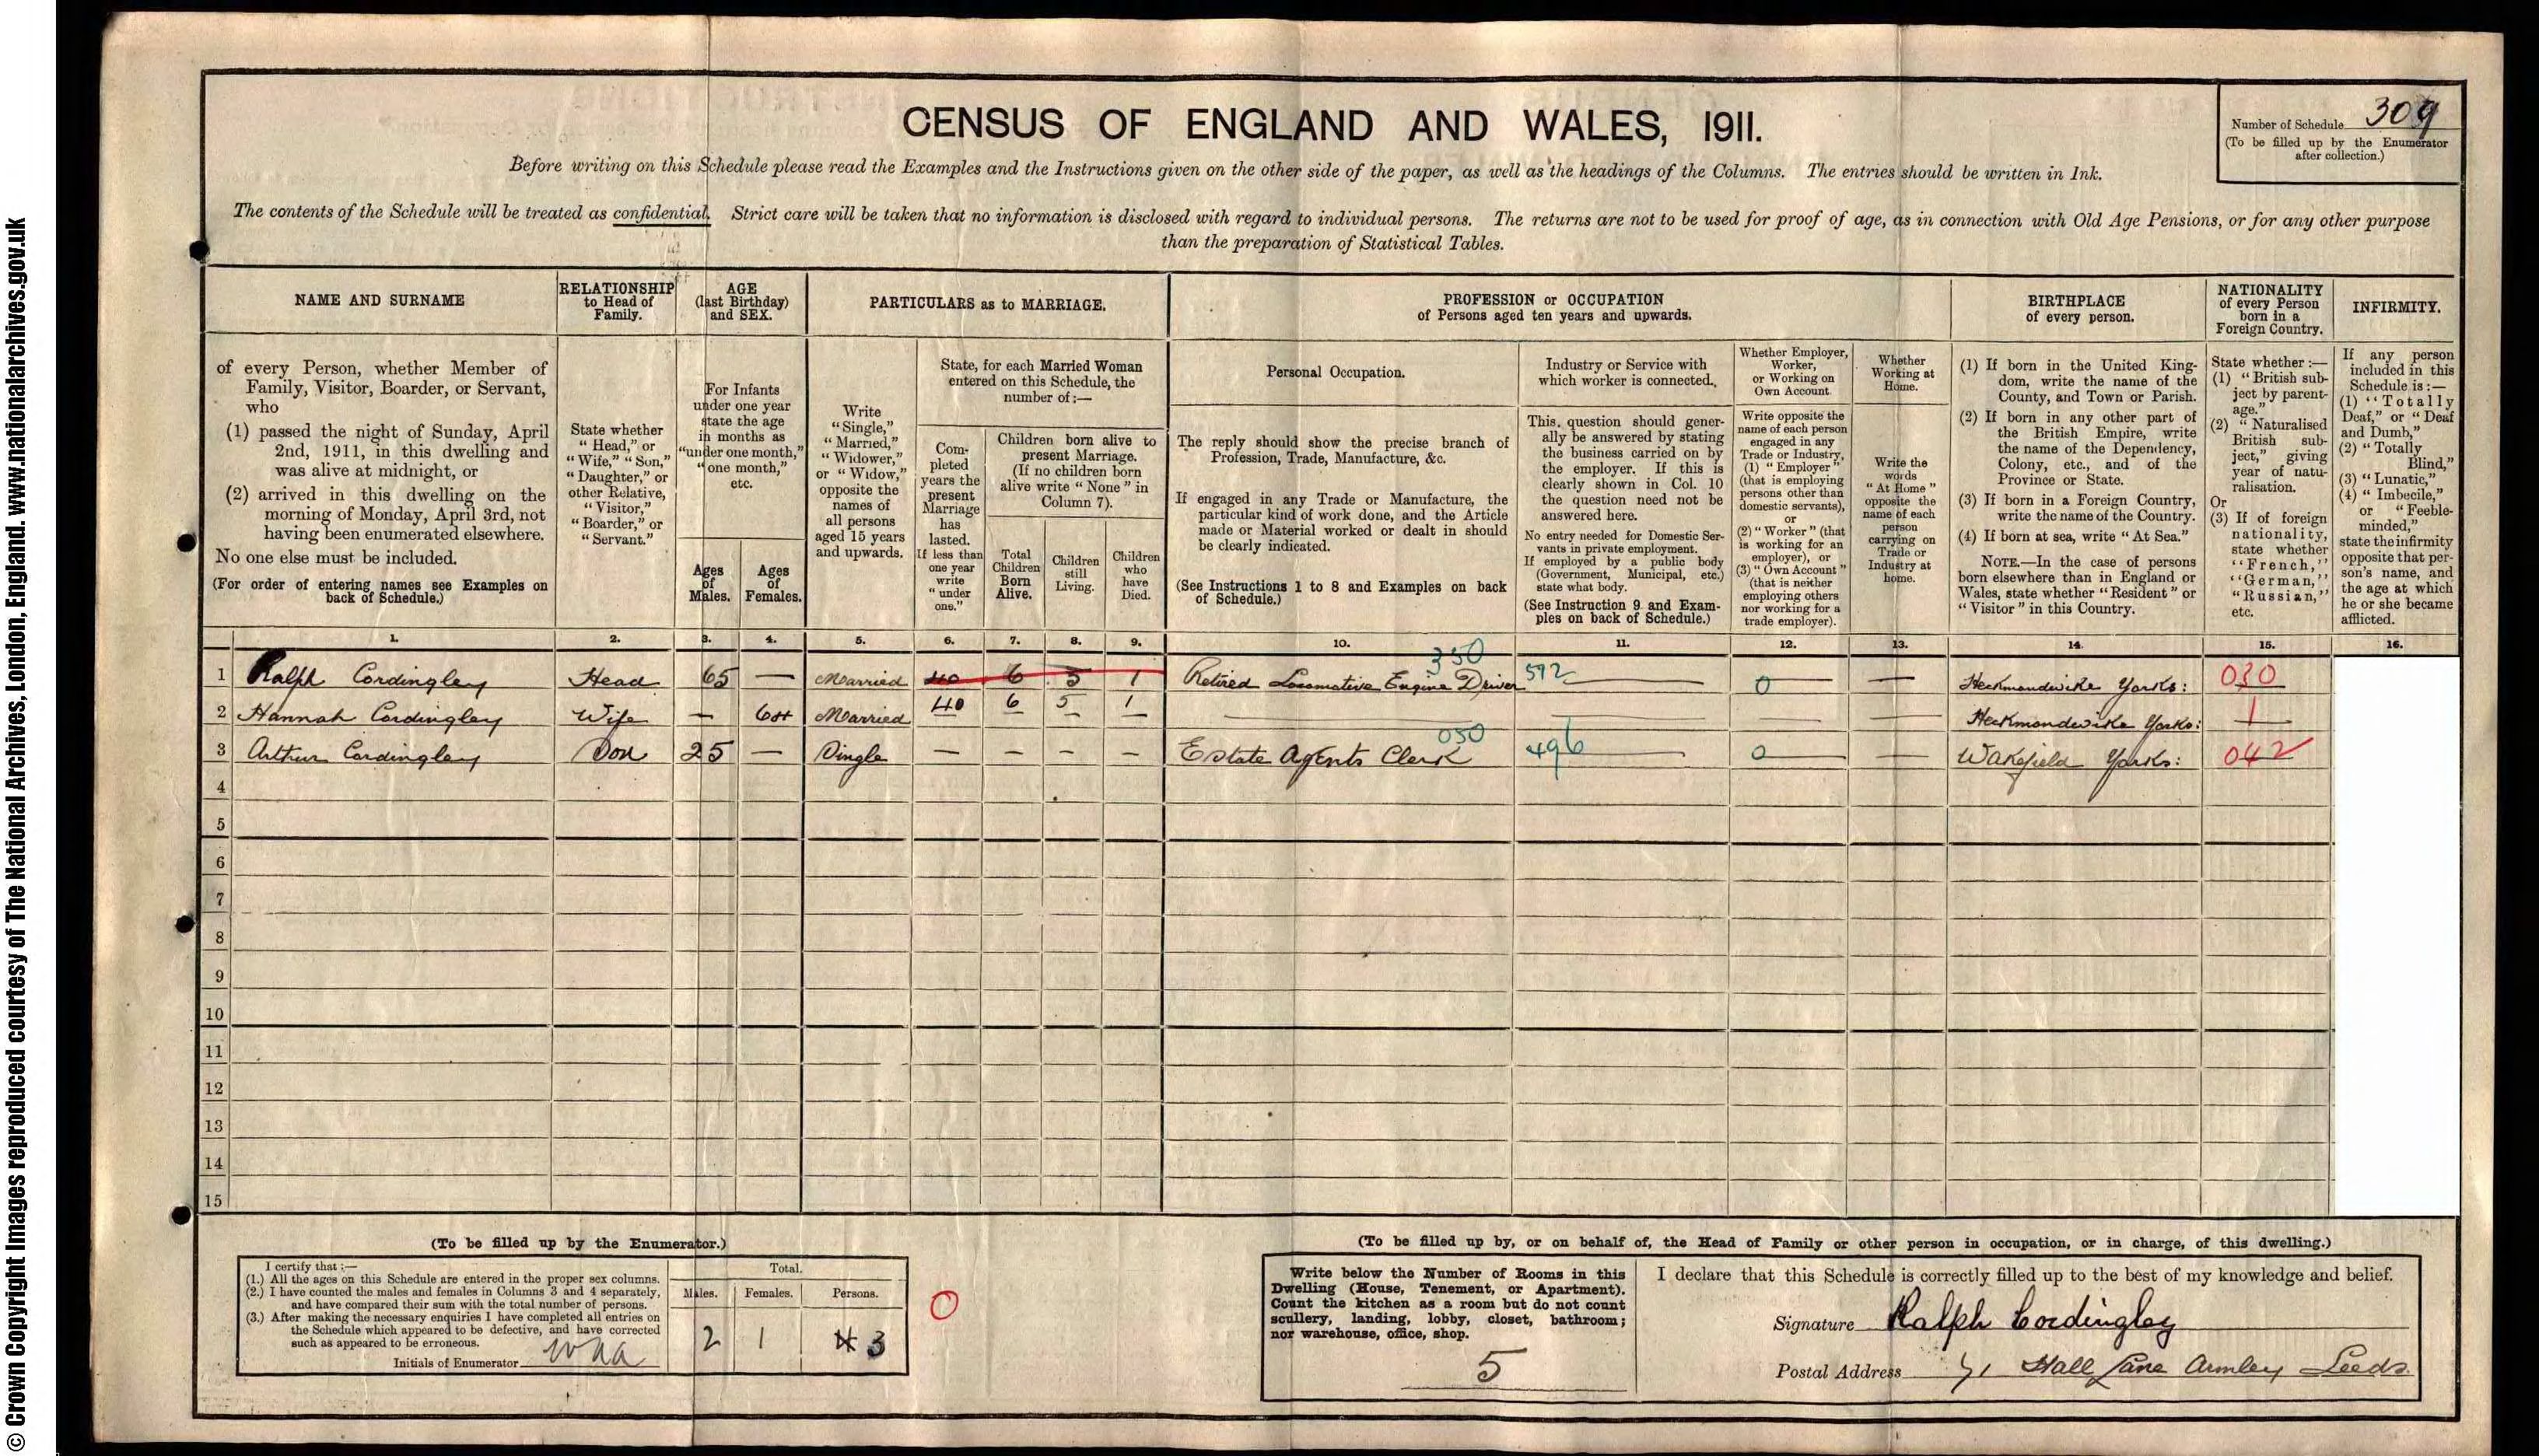 © Crown Copyright Images reproduced courtesy of The National Archives, London, England. www.nationalarchives.gov.uk
CENSUS OF ENGLAND AND WALES, 1911.
Number of Schedule 309
(To be filled up by the Enumerator
after collection.)
Before writing on this Schedule please read the Examples and the Instructions given on the other side of the paper, as well as the headings of the Columns. The entries should be written in Ink.
The contents of the Schedule will be treated as confidential. Strict care will be taken that no information is disclosed with regard to individual persons. The returns are not to be used for proof of age, as in connection with Old Age Pensions, or for any other purpose
than the preparation of Statistical Tables.
NAME AND SURNAME
of every Person, whether Member of
Family, Visitor, Boarder, or Servant,
who
(1) passed the night of Sunday, April
2nd, 1911, in this dwelling and
was alive at midnight, or
(2) arrived in this dwelling on the
morning of Monday, April 3rd, not
having been enumerated elsewhere.
No one else must be included.
(For order of entering names see Examples on
back of Schedule.)
RELATIONSHIP
to Head of
Family.
State whether
"Head," or
"Wife," "Son,"
"Daughter," or
other Relative,
"Visitor,"
"Boarder," or
"Servant."
AGE
(last Birthday)
and SEX.
For Infants
under one year
state the age
in months as
"under one month,"
"one month,"
etc.
Ages
of
Males.
Ages
of
Females.
PARTICULARS as to MARRIAGE.
Write
"Single,"
"Married,"
"Widower,"
or "Widow,"
opposite the
names of
all persons
aged 15 years
and upwards.
State, for each Married Woman
entered on this Schedule, the
number of:—
Com-
pleted
years the
present
Marriage
has
lasted.
If less than
one year
write
"under
one."
Children born alive to
present Marriage.
(If no children born
alive write "None" in
Column 7).
Total
Children
Born
Alive.
Children
still
Living.
Children
who
have
Died.
PROFESSION or OCCUPATION
of Persons aged ten years and upwards.
Personal Occupation.
The reply should show the precise branch of
Profession, Trade, Manufacture, &c.
If engaged in any Trade or Manufacture, the
particular kind of work done, and the Article
made or Material worked or dealt in should
be clearly indicated.
(See Instructions 1 to 8 and Examples on back
of Schedule.)
Industry or Service with
which worker is connected.
This question should gener-
ally be answered by stating
the business carried on by
the employer. If this is
clearly shown in Col. 10
the question need not be
answered here.
No entry needed for Domestic Ser-
vants in private employment.
If employed by a public body
(Government, Municipal, etc.)
state what body.
(See Instruction 9 and Exam-
ples on back of Schedule.)
Whether Employer,
Worker,
or Working on
Own Account.
Write opposite the
name of each person
engaged in any
Trade or Industry,
(1) "Employer"
(that is employing
persons other than
domestic servants),
or
(2) "Worker" (that
is working for an
employer), or
(3) "Own Account"
(that is neither
employing others
nor working for a
trade employer).
Whether
Working at
Home.
Write the
words
"At Home"
opposite the
name of each
person
carrying on
Trade or
Industry at
home.
BIRTHPLACE
of every person.
(1) If born in the United King-
dom, write the name of the
County, and Town or Parish.
(2) If born in any other part of
the British Empire, write
the name of the Dependency,
Colony, etc., and of the
Province or State.
(3) If born in a Foreign Country,
write the name of the Country.
(4) If born at sea, write "At Sea."
NOTE.—In the case of persons
born elsewhere than in England or
Wales, state whether "Resident" or
"Visitor" in this Country.
NATIONALITY
of every Person
born in a
Foreign Country.
State whether:—
(1) "British sub-
ject by parent-
age."
(2) "Naturalised
British sub-
ject," giving
year of natu-
ralisation.
Or
(3) If of foreign
nationality,
state whether
"French,"
"German,"
"Russian,"
etc.
INFIRMITY.
If any person
included in this
Schedule is:—
(1) "Totally
Deaf," or "Deaf
and Dumb,"
(2) "Totally
Blind,"
(3) "Lunatic,"
(4) "Imbecile,"
or "Feeble-
minded,"
state the infirmity
opposite that per-
son's name, and
the age at which
he or she became
afflicted.
1. 2. 3. 4. 5. 6. 7. 8. 9. 10. 11. 12. 13. 14. 15. 16.
350
1 Ralph Cordingley Head 65 — Married 40 6 5 1 Retired Locomotive Engine Driver 592 — 0 — — Heckmondwike Yorks: 030
2 Hannah Cordingley Wife — 64 Married 40 6 5 1 — — — — Heckmondwike Yorks: 1
050
3 Arthur Cordingley Son 25 — Single — — — — Estate Agents Clerk 496 — 0 — — Wakefield Yorks: 042
4
5
6
7
8
9
10
11
12
13
14
15
(To be filled up by the Enumerator.)
I certify that:—
(1.) All the ages on this Schedule are entered in the proper sex columns.
(2.) I have counted the males and females in Columns 3 and 4 separately,
and have compared their sum with the total number of persons.
(3.) After making the necessary enquiries I have completed all entries on
the Schedule which appeared to be defective, and have corrected
such as appeared to be erroneous.
Initials of Enumerator
Total.
Males. Females. Persons.
2 1 3
0
(To be filled up by, or on behalf of, the Head of Family or other person in occupation, or in charge, of this dwelling.)
Write below the Number of Rooms in this
Dwelling (House, Tenement, or Apartment).
Count the kitchen as a room but do not count
scullery, landing, lobby, closet, bathroom;
nor warehouse, office, shop.
5
I declare that this Schedule is correctly filled up to the best of my knowledge and belief.
Signature Ralph Cordingley
Postal Address 71 Hall Lane Armley Leeds.